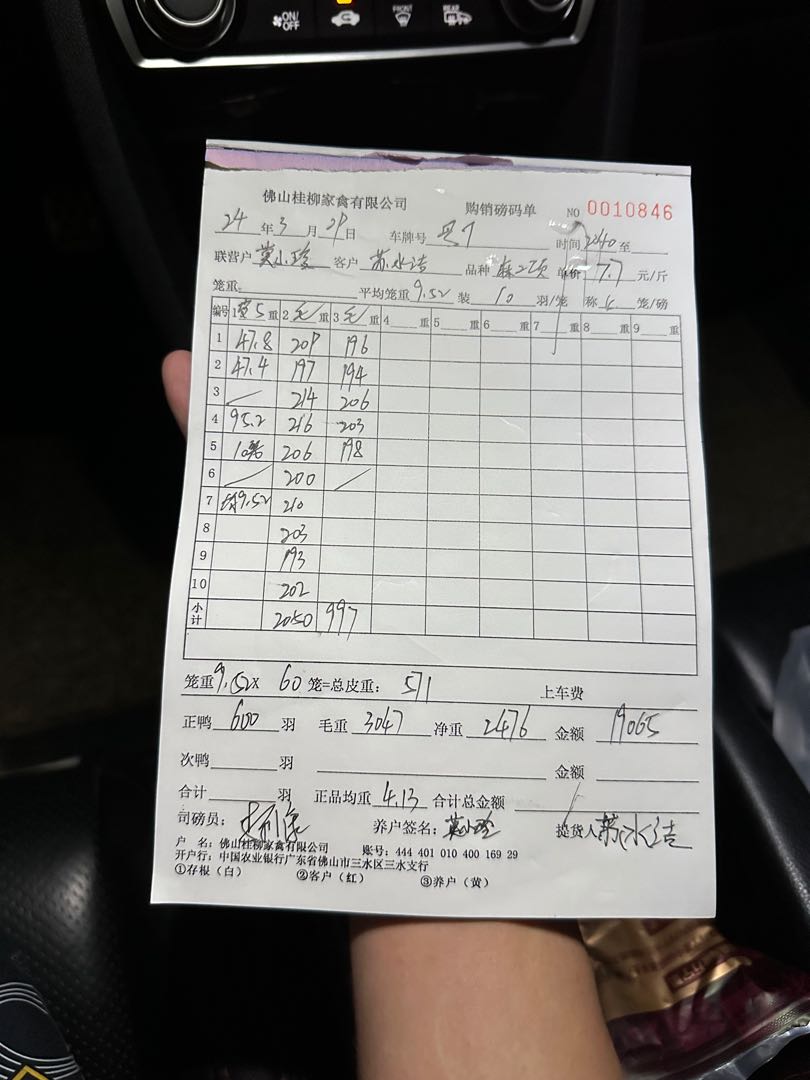 ON/OFF FRONT REAR
佛山桂柳家禽有限公司 购销磅码单 NO 0010846
24 年 3 月 29 日 车牌号 时间 2240 至
联营户 莫小珍 客户 苏水洁 品种 麻二项 单价 7.7 元/斤
笼重: 平均笼重 9.52 装 10 羽/笼 称 4 笼/磅
编号 1 空5 重 2 毛 重 3 毛 重 4 重 5 重 6 重 7 重 8 重 9 重
1 47.8 209 196
2 47.4 197 194
3 214 206
4 95.2 216 203
5 10 206 198
6 200
7 均9.52 210
8 203
9 193
10 202
小计 2050 997
笼重 9.52 X 60 笼=总皮重: 571 上车费
正鸭 600 羽 毛重 3047 净重 2476 金额 19065
次鸭 羽 金额
合计 羽 正品均重 4.13 合计总金额
司磅员: 养户签名: 莫小珍 提货人 苏水洁
户 名: 佛山桂柳家禽有限公司 账号: 444 401 010 400 169 29
开户行: 中国农业银行广东省佛山市三水区三水支行
①存根（白） ②客户（红） ③养户（黄）